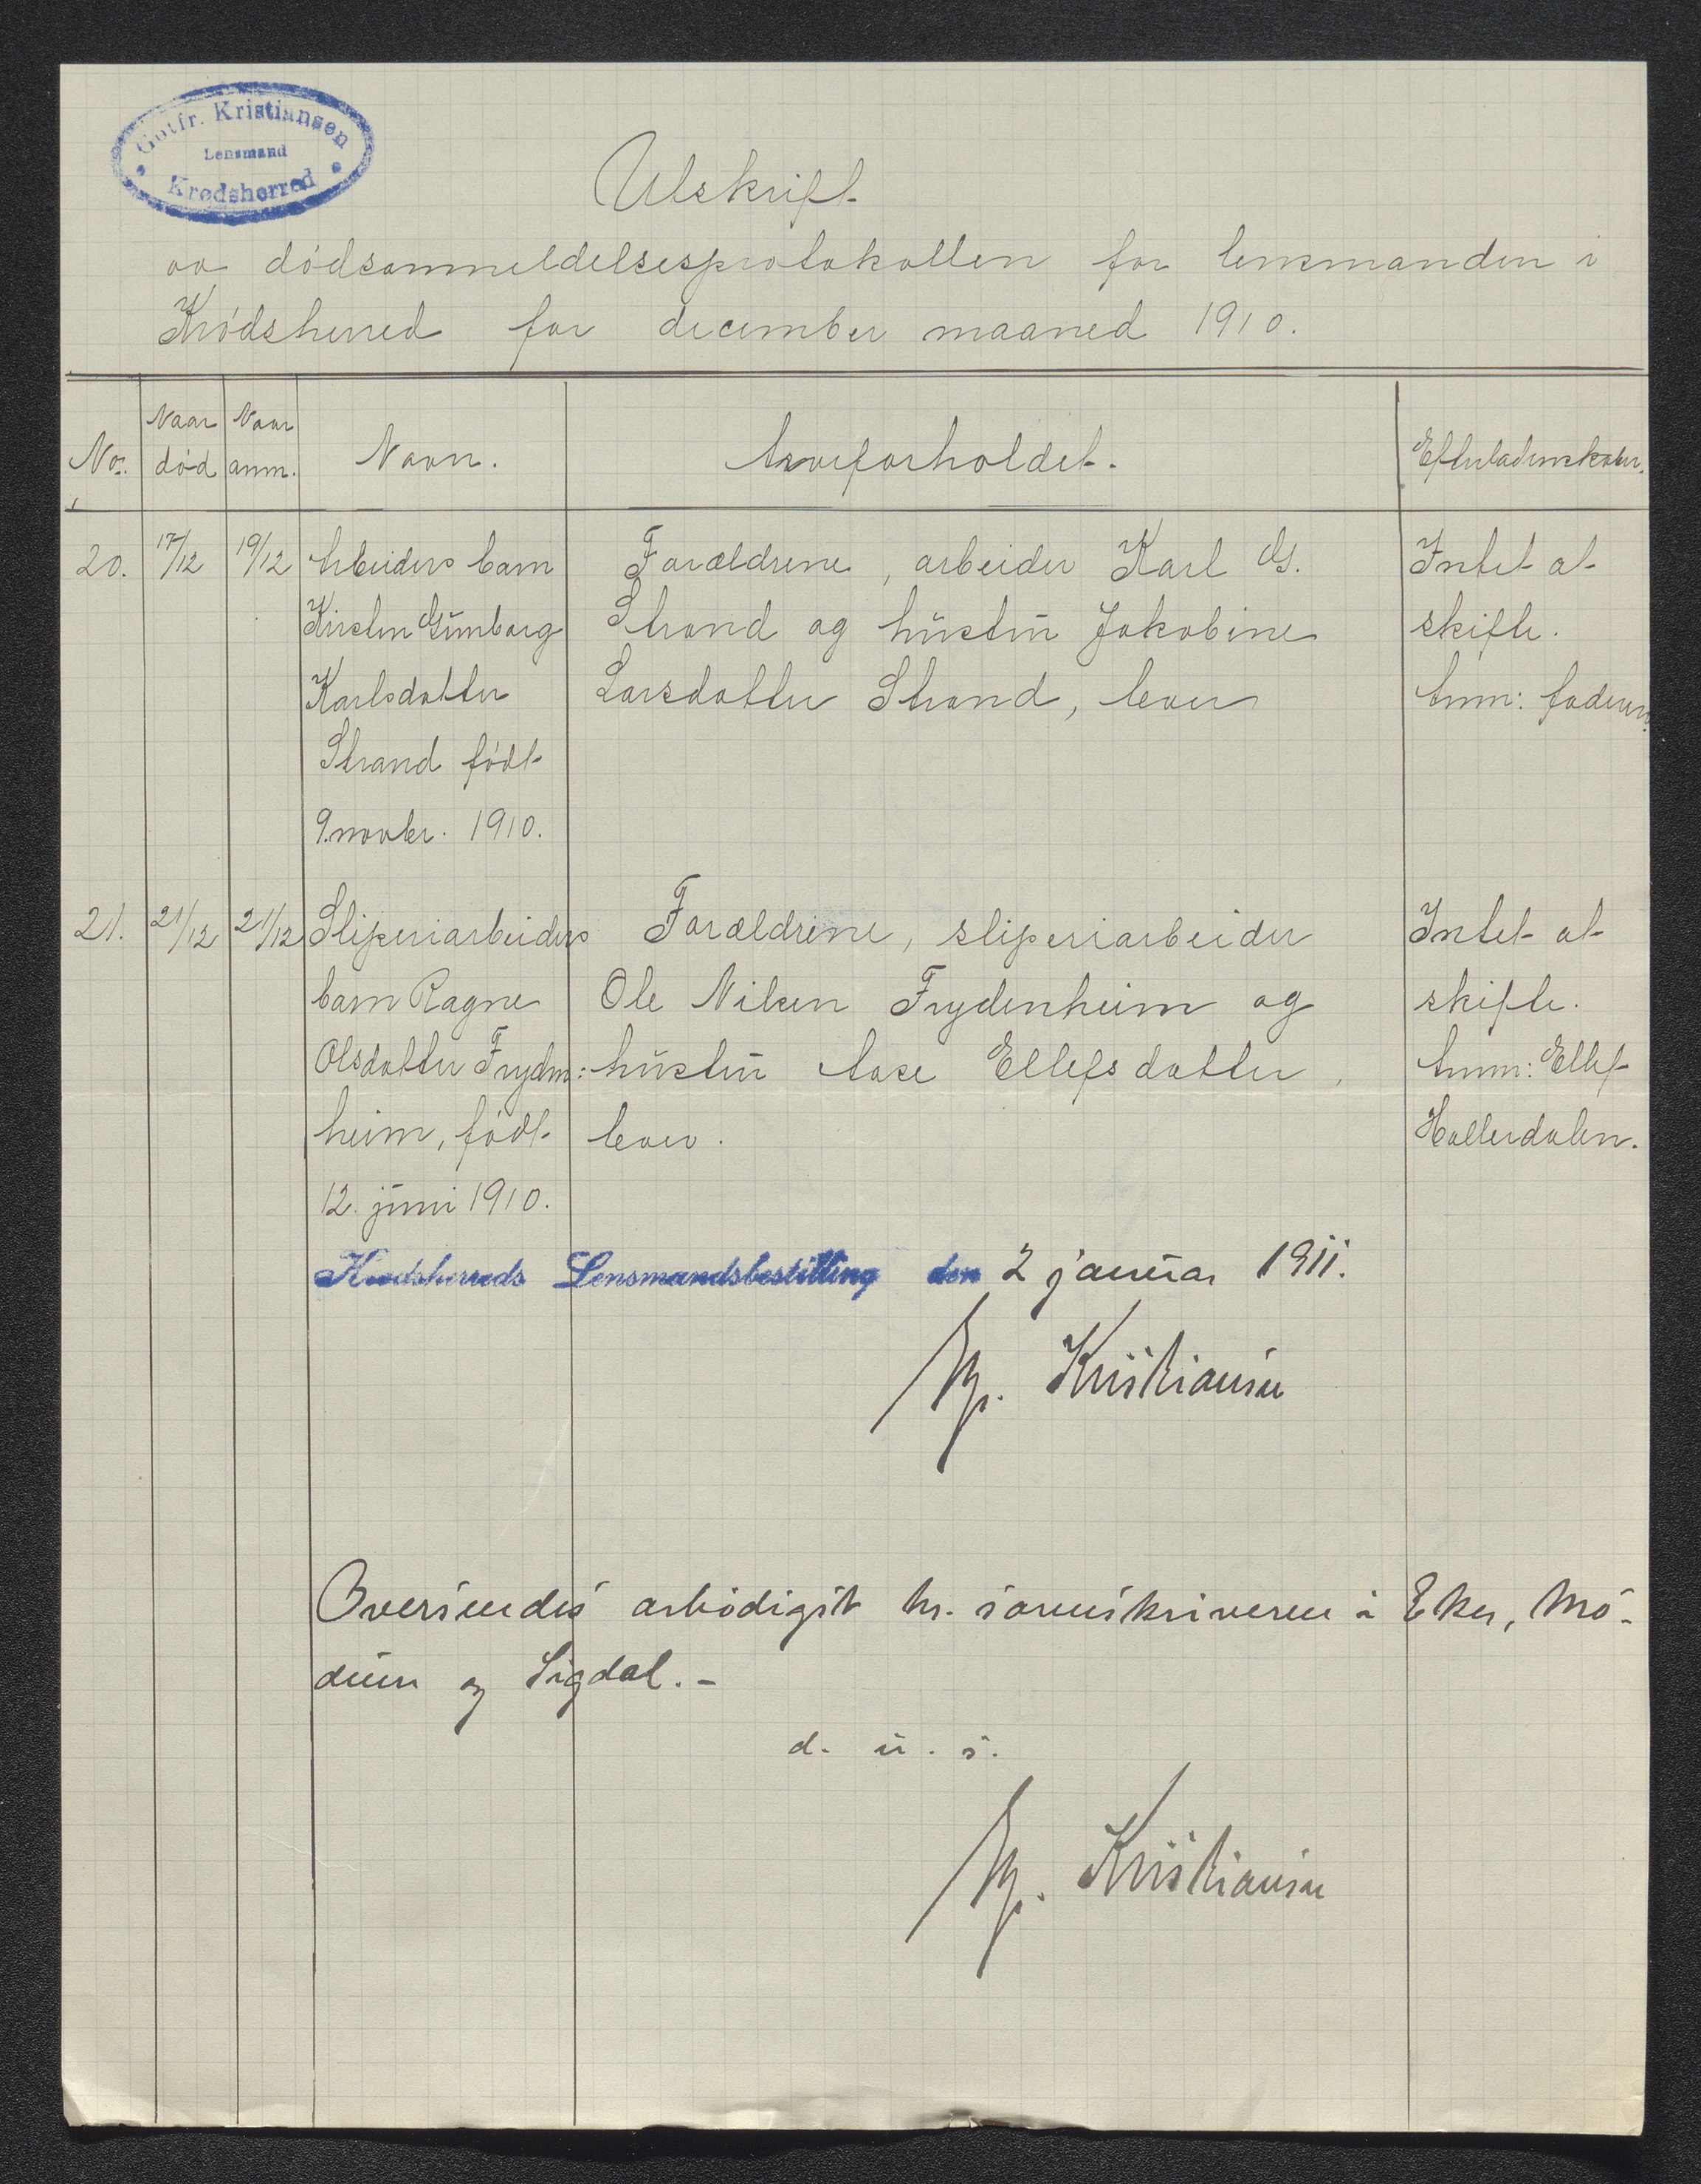 Gotfr. Kristiansen
Lensmand
Krødsherred
Utskrift
av dødsanmeldelsesprotokollen for lensmanden i
Krødsherred for december maaned 1910.
No. Naar død Naar anm. Navn. Arveforholdet. Efterladenskaber.
20. 17/12 19/12 Arbeiders barn Forældrene, arbeider Karl G. Intet at
Kirsten Gunborg Strand og hustru Jakobine skifte.
Karlsdatter Larsdatter Strand, lever Anm: faderen.
Strand født
9. novbr. 1910.
21. 21/12 21/12 Sliperiarbeiders Forældrene, sliperiarbeider Intet at
barn Ragne Ole Nilsen Frydenheim og skifte.
Olsdatter Fryden: hustru Aase Ellefsdatter, Anm: Ellef
heim, født lever. Hallerdalen.
12. juni 1910.
Krødsherreds Lensmandsbestilling den 2 januar 1911.
Kristiansen
Oversendes ærbødigst hr. sorenskriveren i Eker, Mo-
dum og Sigdal.-
d. u. s.
Kristiansen